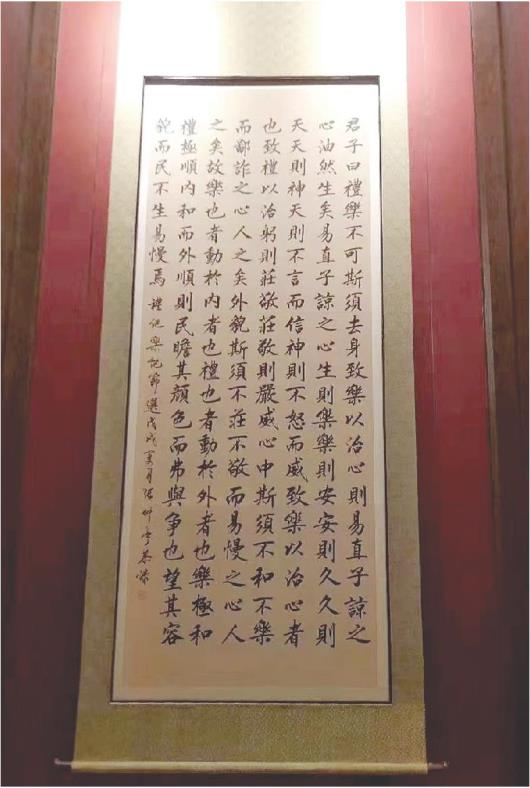 君子曰禮樂不可斯須去身致樂以治心則易直子諒之
心油然生矣易直子諒之心生則樂樂則安安則久久則
天天則神天則不言而信神則不怒而威致樂以治心者
也致禮以治躬則莊敬莊敬則嚴威心中斯須不和不樂
而鄙詐之心入之矣外貌斯須不莊不敬而易慢之心入
之矣故樂也者動於內者也禮也者動於外者也樂極和
禮極順內和而外順則民瞻其顏色而弗與爭也望其容
貌而民不生易慢焉 禮記樂記節選戊戌夏月張仲亭恭錄